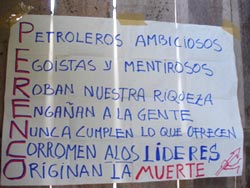 PETROLEROS AMBICIOSOS
EGOISTAS Y MENTIROSOS
ROBAN NUESTRA RIQUEZA
ENGAÑAN A LA GENTE
NUNCA CUMPLEN LO QUE OFRECEN
CORROMEN A LOS LÍDERES
ORIGINAN LA MUERTE